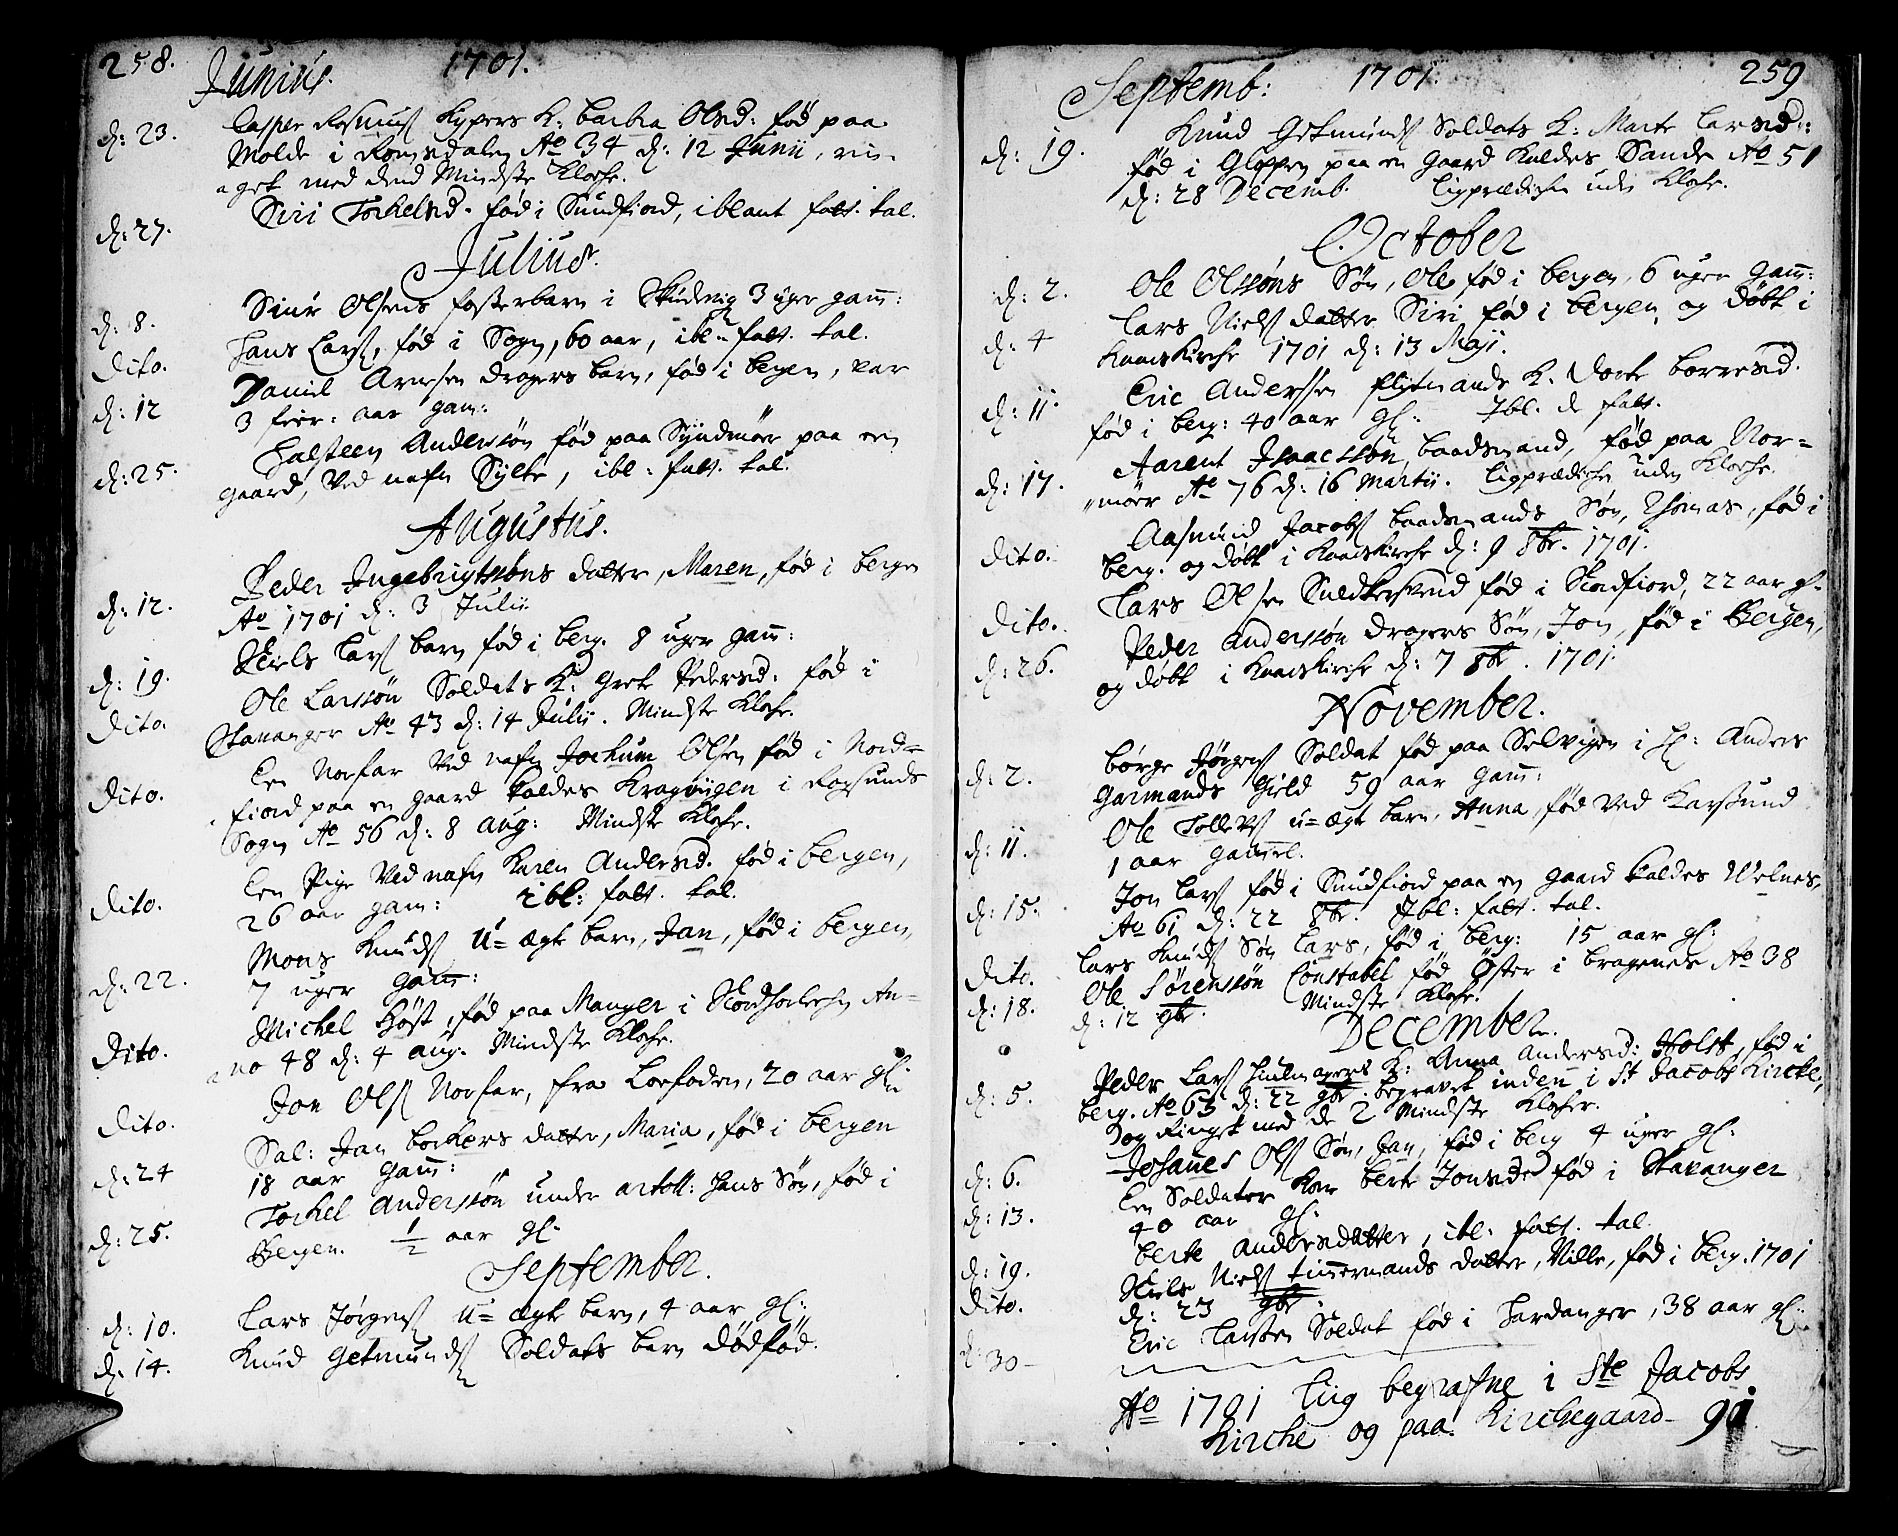 258.
1701.
Junius.
d: 23. Casper Rasmus Kypers K: barbra Olsd: fød paa
Molde i Romsdalen Ao 34 d: 12 Junii, rin-
get med dend Mindste Kloche.
d: 27. Siri Torkelsd. fød i Sundfiord, iblant fatt. tal.
Julius.
d: 8. Siur Olsens fosterbarn i Skudevig 3 uger gam:
Dito. Hans Lars, fød i Sogn, 60 aar, ibl: fatt. tal.
d: 12 Daniel Arnesen dragers barn, fød i bergen, var
3 fier: aar gam:
d: 25. Halsteen Anderssøn fød paa Syndmør paa en
gaard, Ved nafn Sylte, ibl: fatt. tal.
Augustus.
d: 12. Peder Ingebrigtsøns datter, Maren, fød i bergen
Ao 1701 d: 3 Julii
d: 19. Niels Lars barn fød i berg. 8 uger gam:
Dito. Ole Larssøn Soldats K: Grete Pedersd: fød i
Stavanger Ao 43 d: 14 Julii. Mindste Kloche.
Dito. Een Norfar Ved nafn Jochum Olsen fød i Nord=
fiord paa en gaard kaldes Kragvigen i
Sogn Ao 56 d: 8 aug: Mindste Kloche.
Dito. Een Pige Ved nafn Karen Andersd. fød i bergen,
26 aar gam: ibl: fatt. tal.
d: 22. Mons Knuds U=ægte barn, Jan, fød i bergen,
7 uger gam:
Dito. Michel Høst, fød paa Manger i Nordhorlehn An-
no 48 d: 4 aug. Mindste Kloche.
Dito. Jon Ols Norfar, fra Loefoden, 20 aar gl:
d: 24 Sal: Jan borkers datter, Maria, fød i bergen
18 aar gam:
d: 25. Torkel Anderssøn under artoll: hans Søn, fød i
Bergen. 1/2 aar gl:
September.
d: 10. Lars Jørgens U=ægte barn, 4 aar gl:
d: 14. Knud Getmunds Soldats barn dødfød.
Septemb: 1701. 259
d: 19. Knud Getmunds Soldats K: Marte Larsd:
fød i Gloppen paa en Gaard kaldes Sande Ao 51
d: 28 Decemb. Ligprædichen uden Kloche.
October
d: 2. Ole Olssøns Søn, Ole fød i bergen, 6 uger gam:
d: 4 Lars Niels datter Siri fød i bergen, og døbt i
Kaarskirche 1701 d: 13 Maji.
d: 11. Eric Anderssen K. Dorte borresd.
fød i berg: 40 aar gl: Ibl. de fatt.
d: 17. Aarent Isaacssøn, baadsmand, fød paa Nor=
=møer Ao 76 d: 16 Martii. Ligprædichen uden Kloche.
Dito. Aasmund Jacobs baadsmands Søn, Thomas, fød i
berg. og døbt i Kaarskirche d: 9 8br. 1701.
Dito. Lars Olsen fød i Nordfiord, 22 aar gl.
d: 26. Peder Anderssøn dragers Søn, Jon, fød i Bergen,
og døbt i Kaarskirche d: 7 8br. 1701.
November.
d: 2. børge Jørgens Soldat fød paa Selvigen i Anders
Garmands Gield 59 aar gam:
d: 11. Ole Tollefs u=ægte barn, Anna, fød Ved Karssund
1 aar gammel.
d: 15. Jon Lars fød i Sundfiord paa en gaard kaldes Welnes,
Ao 61 d: 22 8br. Ibl: fatt. tal.
Dito. Lars Knuds Søn Lars, fød i berg: 15 aar gl:
d: 18. Ole Sørenssøn Constabel fød Øster i bragenes Ao 38
d: 12 9br. Mindste Kloche.
December.
d: 5. Peder Lars K: Anna Andersd: Holst, fød i
berg. Ao 63 d: 22 9br. begravet inden i St Jacobs Kirche,
og Ringet med de 2 Mindste Klocher.
d: 6. Johanes Ols Søn, Jan, fød i berg 4 uger gl:
d: 13. Een Soldater Kone berte Jonsd fød i Stavanger
40 aar gl:
d: 19. Berte Andersdatter, ibl: fatt. tal.
Dito. Niels Niels timermands datter, Ville, fød i berg. 1701
d: 23 9br.
d: 30 Eric Larsen Soldat fød i Hardanger, 38 aar gl:
Ao 1701 Liig begrafne i Ste Jacobs
Kirche og paa Kirchegaard 91